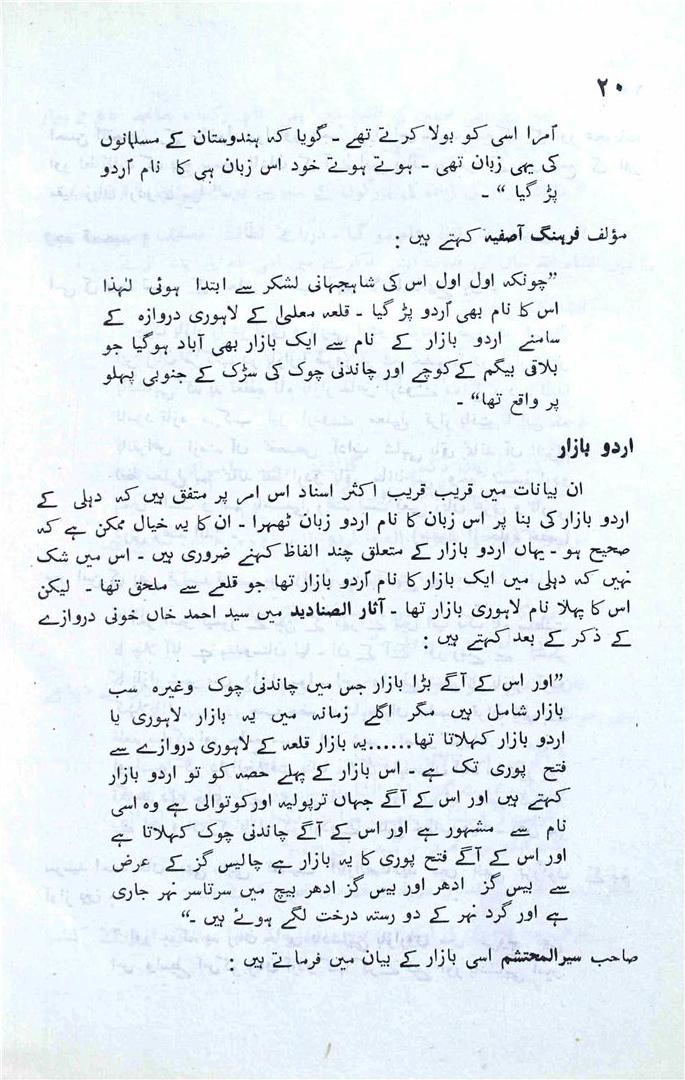 ۲۰
اُمرا اسی کو بولا کرتے تھے ۔ گویا کہ ہندوستان کے مسلمانوں
کی یہی زبان تھی ۔ ہوتے ہوتے خود اس زبان ہی کا نام اُردو
پڑ گیا “ ۔
مؤلف فرہنگ آصفیہ کہتے ہیں :
”چونکہ اول اول اس کی شاہجہانی لشکر سے ابتدا ہوئی لہٰذا
اس کا نام بھی اُردو پڑ گیا ۔ قلعہ معلیٰ کے لاہوری دروازہ کے
سامنے اردو بازار کے نام سے ایک بازار بھی آباد ہوگیا جو
بلاقی بیگم کے کوچے اور چاندنی چوک کی سڑک کے جنوبی پہلو
پر واقع تھا“ ۔
اردو بازار
ان بیانات میں قریب قریب اکثر اسناد اس امر پر متفق ہیں کہ دہلی کے
اردو بازار کی بنا پر اس زبان کا نام اردو زبان ٹھہرا ۔ ان کا یہ خیال ممکن ہے کہ
صحیح ہو ۔ یہاں اردو بازار کے متعلق چند الفاظ کہنے ضروری ہیں ۔ اس میں شک
نہیں کہ دہلی میں ایک بازار کا نام اُردو بازار تھا جو قلعے سے ملحق تھا ۔ لیکن
اس کا پہلا نام لاہوری بازار تھا ۔ آثار الصنادید میں سید احمد خاں خونی دروازے
کے ذکر کے بعد کہتے ہیں :
”اور اس کے آگے بڑا بازار جس میں چاندنی چوک وغیرہ سب
بازار شامل ہیں مگر اگلے زمانہ میں یہ بازار لاہوری یا
اردو بازار کہلاتا تھا......یہ بازار قلعہ کے لاہوری دروازے سے
فتح پوری تک ہے ۔ اس بازار کے پہلے حصہ کو تو اردو بازار
کہتے ہیں اور اس کے آگے جہاں ترپولیہ اور کوتوالی ہے وہ اسی
نام سے مشہور ہے اور اس کے آگے چاندنی چوک کہلاتا ہے
اور اس کے آگے فتح پوری کا یہ بازار ہے چالیس گز کے عرض
سے بیس گز ادھر اور بیس گز ادھر بیچ میں سرتاسر نہر جاری
ہے اور گرد نہر کے دو رستہ درخت لگے ہوئے ہیں ۔“
صاحب سیرالمحتشم اسی بازار کے بیان میں فرماتے ہیں :